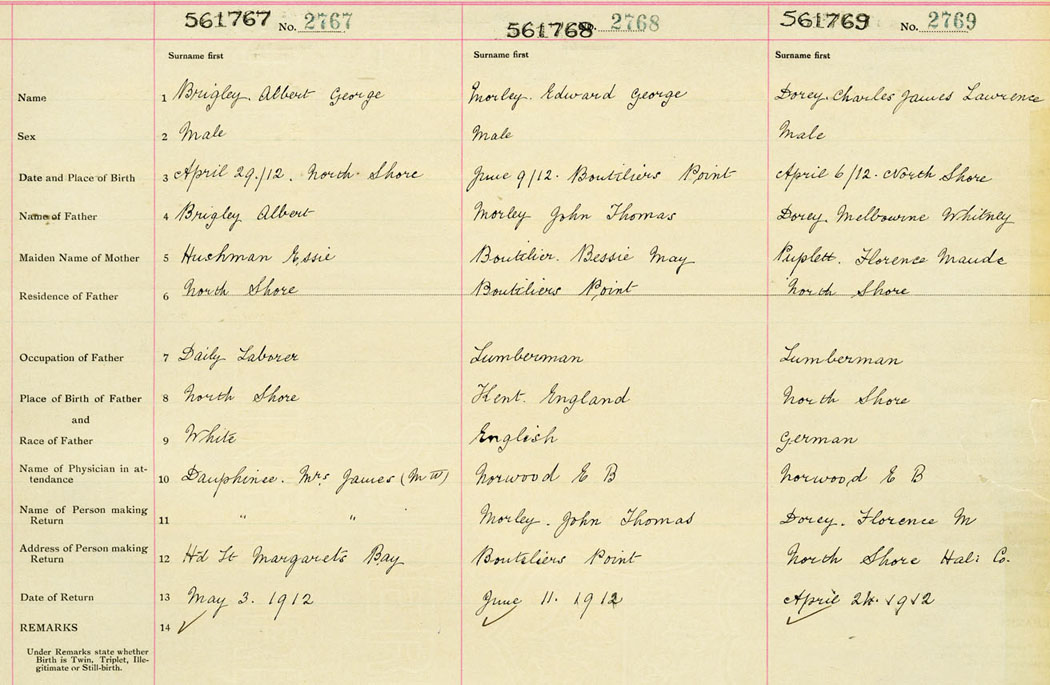 561767 No. 2767 561768 No. 2768 561769 No. 2769
Surname first Surname first Surname first
Name 1 Brigley. Albert George Morley. Edward George Dorey. Charles James Lawrence
Sex 2 Male Male Male
Date and Place of Birth 3 April 29./12. North Shore June 9/12. Boutiliers Point April 6/12. North Shore
Name of Father 4 Brigley Albert Morley John Thomas Dorey. Melbourne Whitney
Maiden Name of Mother 5 Hushman Essie Boutilier. Bessie May Puplett. Florence Maude
Residence of Father 6 North Shore Boutiliers Point North Shore
Occupation of Father 7 Daily Laborer Lumberman Lumberman
Place of Birth of Father 8 North Shore Kent. England North Shore
and
Race of Father 9 White English German
Name of Physician in at-
tendance 10 Dauphinee. Mrs James (M W) Norwood E B Norwood E B
Name of Person making
Return 11 " " Morley. John Thomas Dorey. Florence M
Address of Person making
Return 12 Hd St Margarets Bay Boutiliers Point North Shore Hali Co.
Date of Return 13 May 3. 1912 June 11. 1912 April 24. 1912
REMARKS 14
Under Remarks state whether
Birth is Twin, Triplet, Ille-
gitimate or Still-birth.